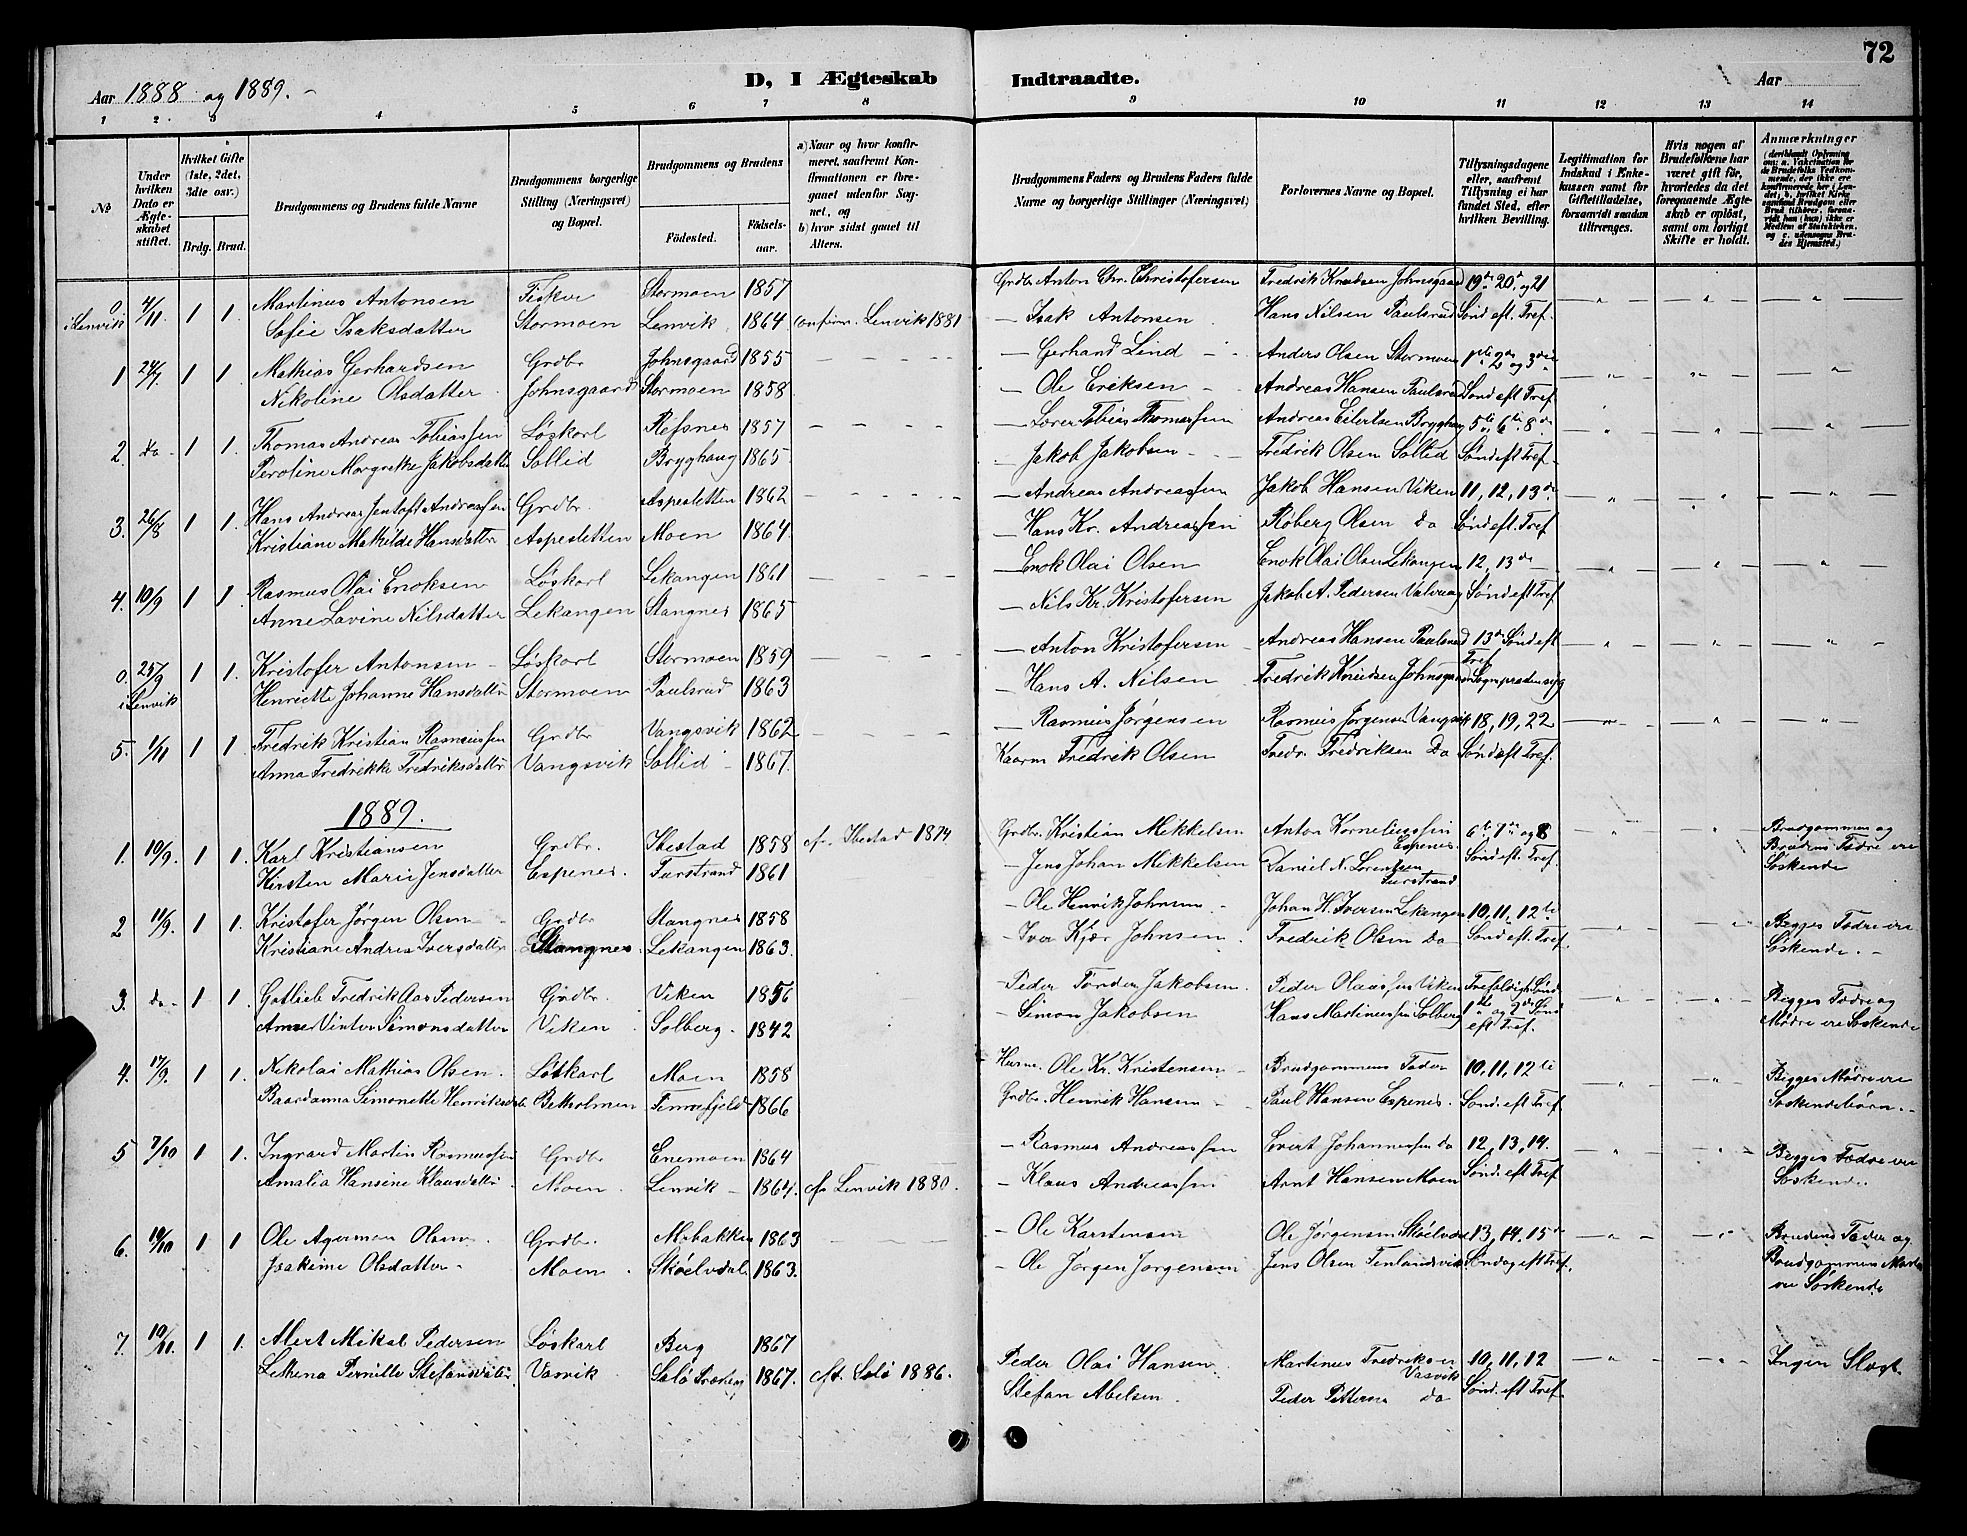 72
Aar 1888 og 1889.
D, I Ægteskab
Indtraadte.
Aar
1 2. 3 4 5 6 7 8 9 10 11 12 13 14
No
Under hvilken Dato er Ægteskabet stiftet.
Hvilket Gifte (1ste, 2det, 3die osv.)
Brdg. Brud.
Brudgommens og Brudens fulde Navne
Brudgommens borgerlige Stilling (Næringsvei) og Bopæl.
Brudgommens og Brudens
Fødested.
Fødselsaar.
a) Naar og hvor konfirmeret, saafremt Konfirmationen er foregaaet udenfor Sognet, og
b) hvor sidst gaaet til Alters.
Brudgommens Faders og Brudens Faders fulde Navne og borgerlige Stillinger (Næringsvei)
Forlovernes Navne og Bopæl.
Tillysningsdagene eller, saafremt Tillysning ei har fundet Sted, efter hvilken Bevilling.
Legitimation for Indskud i Enkekassen samt for Giftetilladelse, forsaavidt saadan tiltrænges.
Hvis nogen af Brudefolkene har været gift før, hvorledes da det foregaaende Ægteskab er opløst, samt om lovligt Skifte er holdt.
Anmærkninger
0 i Lenvik 4/11. 1 1 Martinus Antonsen Fisker Stormoen 1857 Grdbr Anton Chr. Christofersen Fredrik Knudsen Johnsgaard 19de 20de og 21
Sofie Isaksdatter Stormoen Lenvik 1864 Confirm. Lenvik 1881 — Isak Antonsen Hans Nilsen Paulsrud Sønd eft. Tref.
1 24/7. 1 1 Mathias Gerhardsen Grdbr Johnsgaard 1855 — Gerhard Lind Anders Olsen Stormoen 1ste 2den og 3die
Nikoline Olsdatter Johnsgaard Stormoen 1858 — Ole Eriksen Andreas Hansen Paulsrud Sønd eft Tref
2. do 1 1. Thomas Andreas Tobiassen Løskarl Refsnes 1857 — Lærer Tobias Thomassen Andreas Eilertsen Bryghaug 5te 6te 8de
Peroline Margrethe Jakobsdatter Sollid Bryghaug 1865 — Jakob Jakobsen Fredrik Olsen Sollid Sønd eft Tref
3. 26/8 1 1. Hans Andreas Jentoft Andreassen Grdbr. Aspesletten 1862 — Andreas Andreassen Jakob Hansen Viken 11, 12, 13de.
Kristiane Mathilde Hansdatter Aspesletten Moen 1864 — Hans Kr. Andreassen Roberg Olsen Do Sønd eft. Tref
4. 10/9 1 1. Rasmus Olai Enoksen Løskarl Lekangen 1861 — Enok Olai Olsen Enok Olai Olsen Lekangen 12, 13de
Anne Lavine Nilsdatter Lekangen Stangnes 1865 — Nils Kr. Kristofersen Jakob A. Pedersen Sønd eft Tref
0. i Lenvik 25/9 1 1. Kristofer Antonsen Løskarl Stormoen 1859 — Anton Kristofersen Andreas Hansen Paulsrud 13de Sønd eft Tref
Henriette Johanne Hansdatter Stormoen Paulsrud 1863 — Hans A. Nilsen Fredrik Knudsen Johnsgaard
5. 1/11 1 1. Fredrik Kristian Rasmussen Grdbr Vangsvik 1862 — Rasmus Jørgensen Rasmus Jørgensen Vangsvik 18, 19, 22
Anna Fredrikke Fredriksdatter Vangsvik Sollid 1867. Fredrik Olsen Fredr. Fredriksen Do Sønd eft Tref.
1889.
1. 10/9. 1 1. Karl Kristiansen Grdbr. Ibestad 1858 cf. Ibestad 1874 Grdbr. Kristian Mikkelsen Anton Korneliussen Espenes. 6te, 7de og 8 Brudgommens og
Kirsten Marie Jensdatter Espenes. Furstrand 1861 — Jens Johan Mikkelsen Daniel N. Lorentsen Furstrand Sønd eft. Tref. Brudens Fædre ere Søskende
2 11/9. 1 1. Kristofer Jørgen Olsen Grdbr Stangnes 1858 — Ole Henrik Johnsen Johan H. Iversen Lekangen 10, 11, 12te Begges Fædre ere
Kristiane Andrea Iversdatter Stangnes. Lekangen 1863. — Iver Kjær Johnsen. Fredrik Olsen Do Sønd eft. Tref. Søskende.
3. do 1 1. Gotlieb Fredrik Aas Pedersen Grdbr. Viken 1856 — Peder Tønder Jakobsen. Peder Olaussen Viken Trefoldigh. Sønd Begges Fædre og
Anne Vinter Simonsdatter Viken. Solberg. 1842 — Simon Jakobsen Hans Martinussen Solberg 1ste og 2den Sønd eft Tref. Mødre ere Søskende
4. 17/9. 1 1. Nikolai Mathias Olsen. Løskarl Moen 1858 Husm. Ole Kr. Kristensen Brudgommens Fader 10, 11, 12te Begges Mødre ere
Baardanna Simonette Henriksdatter Bekholmen Finnefjeld 1866 Grdbr. Henrik Hansen Paul Hansen Espenes. Sønd. eft Tref Søskendebørn.
5 7/10 1 1. Ingvard Martin Rasmussen Grdbr Enemoen 1864 — Rasmus Andreassen Evert Johannessen do 12, 13, 14. Begges Fædre ere
Amalia Hansine Klausdatter. Moen. Lenvik 1864. cf. Lenvik 1880. — Klaus Andreassen Arnt Hansen Moen Sønd. eft Tref Søskende.
6. 14/10 1 1 Ole Agerman Olsen. Grdbr. Mobakken 1863 — Ole Karstensen Ole Jørgensen Skøelvdal 13, 14, 15de Brudens Fader og
Isakine Olsdatter Moen. Skøelvdal 1863. — Ole Jørgen Jørgensen Jens Olsen Finlandsvik. Søndag eft Tref. Brudgommens Moder ere Søskende
7. 10/11. 1 1. Albert Mikal Pedersen Løskarl Berg 1867 Peder Olai Hansen Martinus Fredriksen Vasvik 10, 11, 12 Ingen Slægt
Lethina Pernille Stefansdatter. Vasvik 1867. cf. Salø 1886. Stefan Abelsen. Peder Pettersen do Sønd. eft Tref.